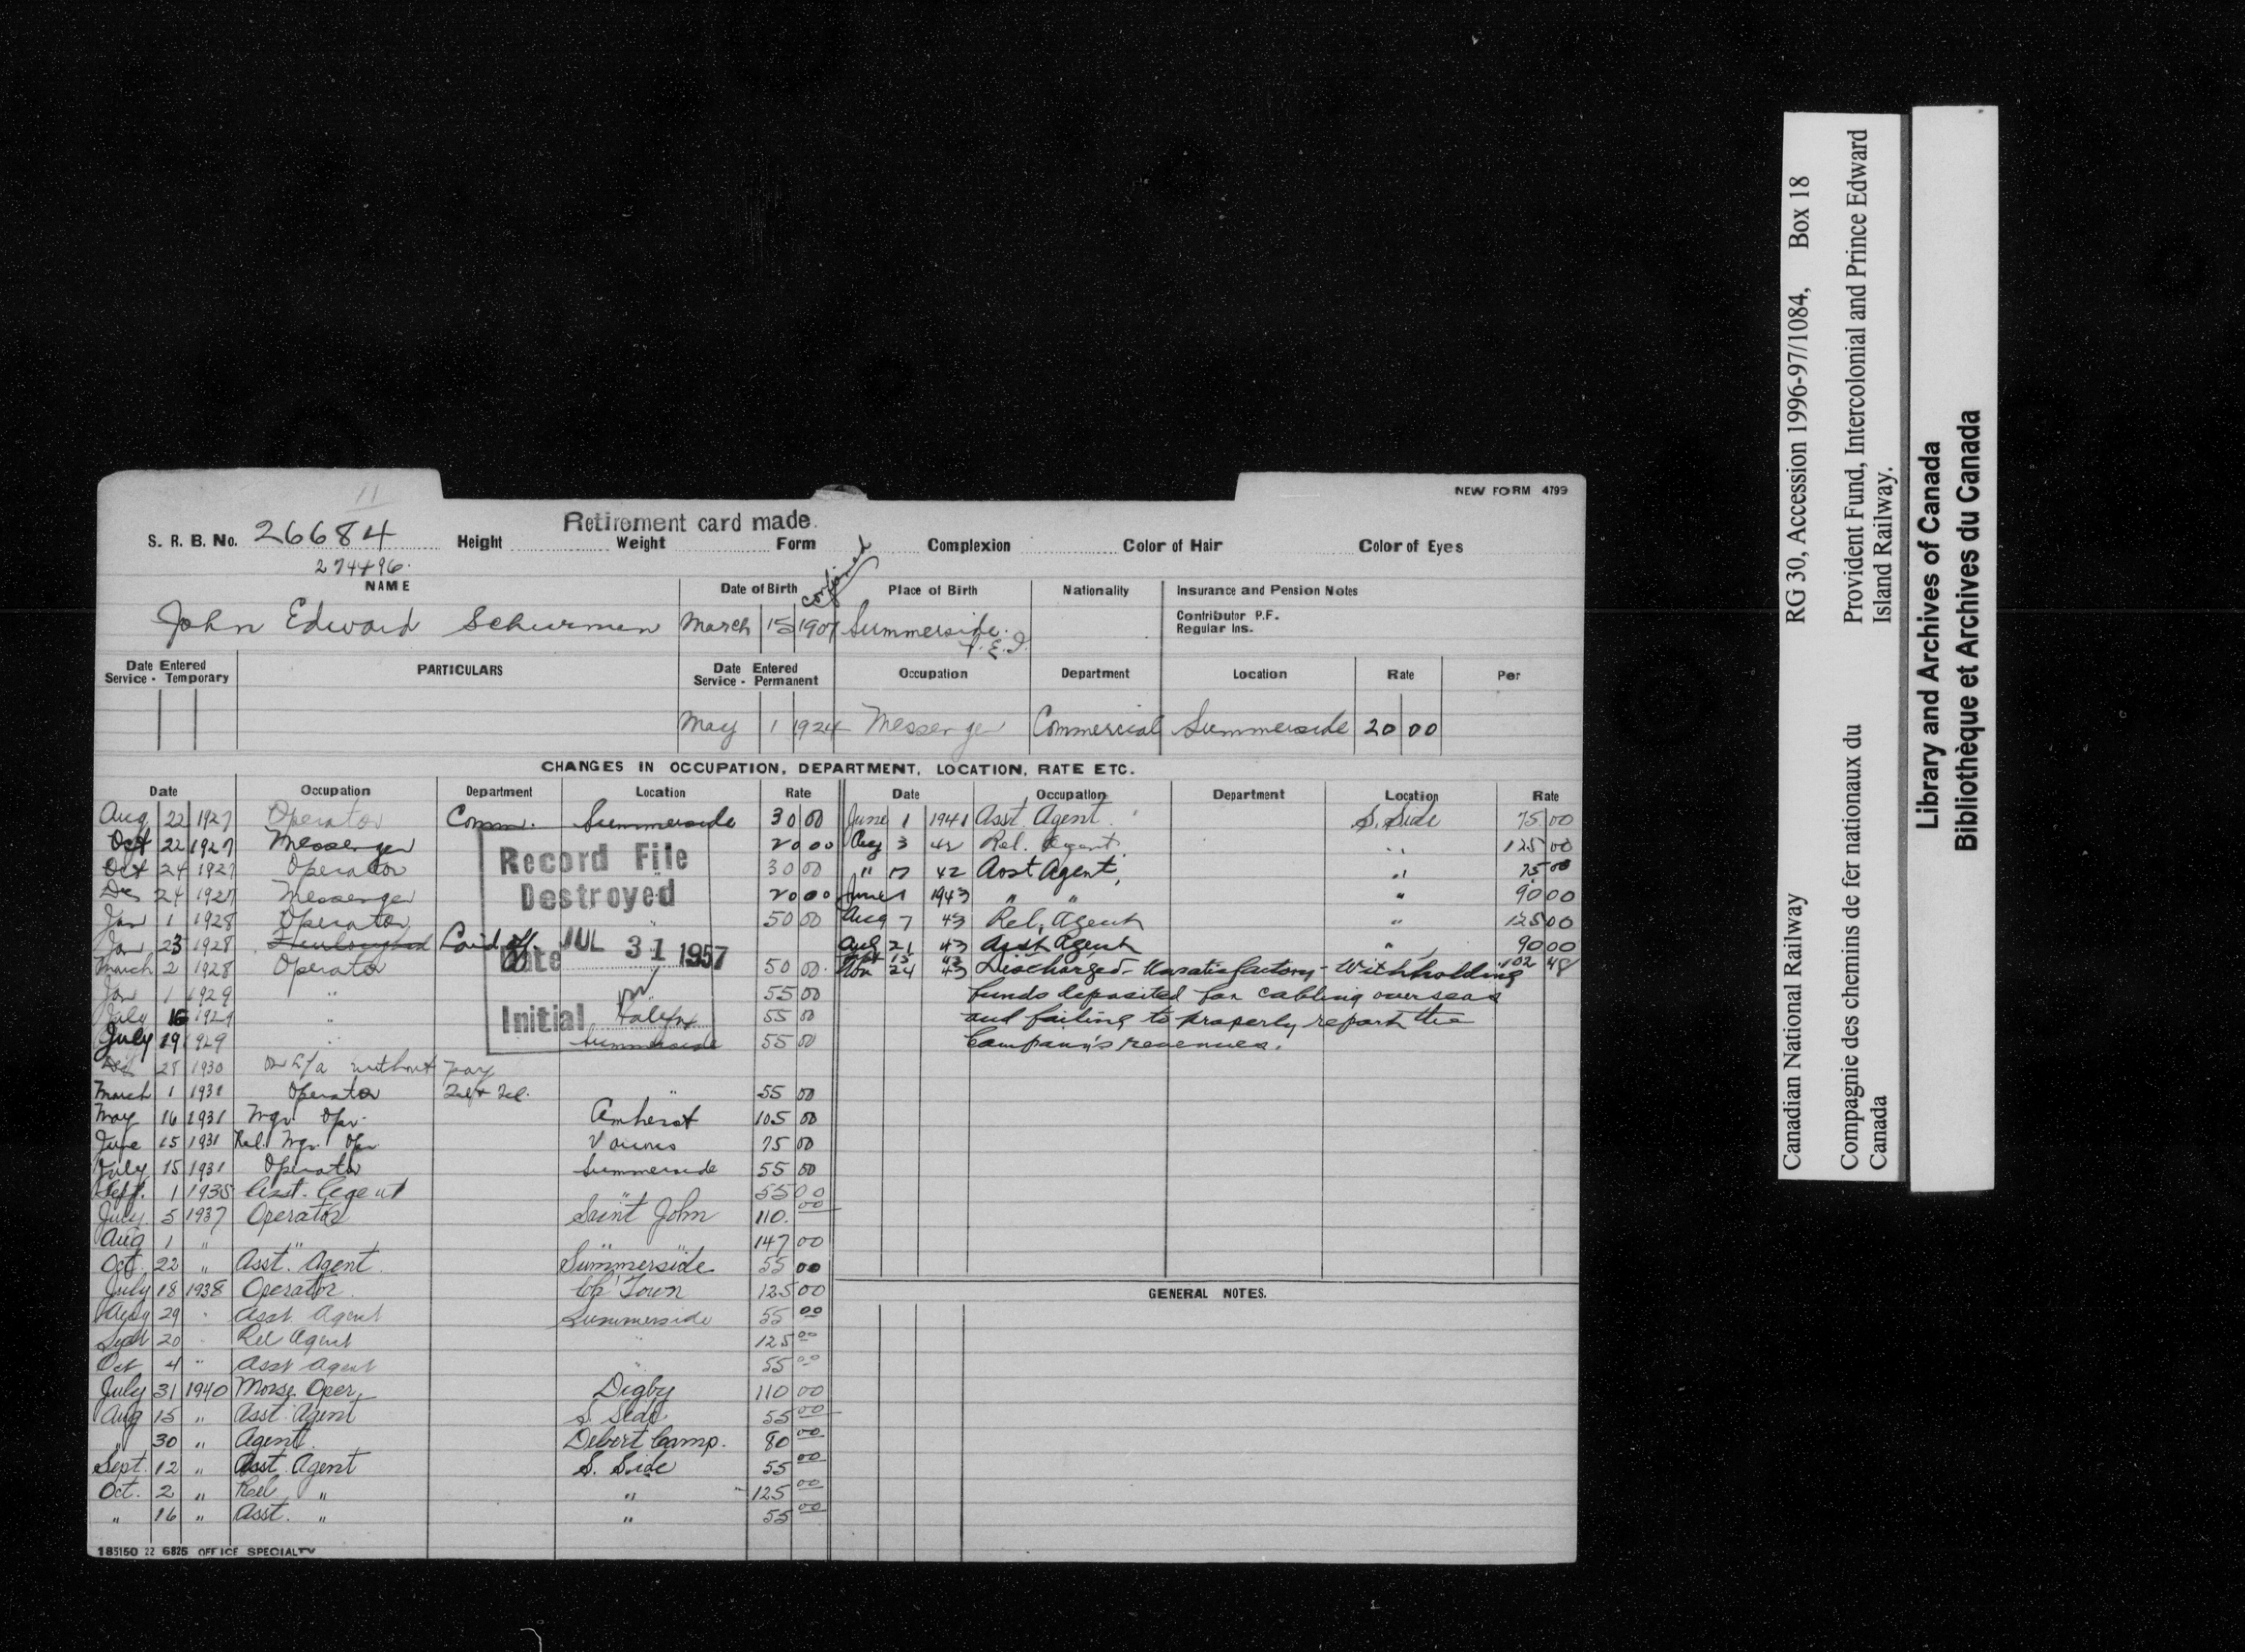 11
NEW FORM 4799
Retirement card made.
S. R. B. No. 26684 Height Weight Form Complexion Color of Hair Color of Eyes
274496.
NAME Date of Birth Place of Birth Nationality Insurance and Pension Notes
John Edward Schurman March 15 1907 Summerside. P.E.I. Contributor P.F.
Regular Ins.
Date Entered Service - Temporary PARTICULARS Date Entered Service - Permanent Occupation Department Location Rate Per
May 1 1924 Messenger Commercial Summerside 20 00
CHANGES IN OCCUPATION, DEPARTMENT, LOCATION, RATE ETC.
Date Occupation Department Location Rate
Aug. 22 1927 Operator Comm. Summerside 30 00
Oct 22 1927 Messenger 20 00
Oct 24 1927 Operator 30 00
Dec 24 1927 Messenger 20 00
Jan 1 1928 Operator " 50 00
Jan 23 1928 Furloughed Laid off.
March 2 1928 Operator 50 00
Jan 1 1929 " 55 00
July 16 1929 " Halifax 55 00
July 19 1929 " Summerside 55 00
28 1930 on L/a without pay
March 1 1931 Operator Tel & Tel. " 55 00
May 16 1931 Mgr. Opr. Amherst 105 00
June 15 1931 Rel. Mgr. Opr. Various 75 00
July 15 1931 Operator Summerside 55 00
Sept. 1 1935 Asst. Agent " 55 00
July 5 1937 Operator Saint John 110. 00
Aug 1 " " " " 147 00
Oct. 22 " Asst. Agent Summerside 55 00
July 18 1938 Operator. Ch'Town 125 00
Aug 29 " Asst Agent Summerside 55 00
Sept 20 " Rel Agent " 125 00
Oct 4 " Asst Agent " 55 00
July 31 1940 Morse Oper. Digby 110 00
Aug 15 " Asst Agent S. Side 55 00
" 30 " Agent Debert Camp. 80 00
Sept. 12 " Asst Agent S. Side 55 00
Oct. 2 " Rel " " 125 00
" 16 " Asst. " " 55 00
Record File
Destroyed
Date JUL 31 1957
Initial
Date Occupation Department Location Rate
June 1 1941 Asst. Agent. S. Side 75 00
Aug 3 42 Rel. Agent. " 125 00
" 17 42 Asst Agent, " 75 00
June 1 1943 " " " 90 00
Aug 7 43 Rel. Agent " 125 00
Aug 21 43 Asst Agent " 90 00
Sept 13 43 102 48
Nov 24 43 Discharged - Unsatisfactory - Withholding
funds deposited for cabling overseas
and failing to properly report the
Company's revenues.
GENERAL NOTES.
185150 22 6826 OFFICE SPECIALTY
Canadian National Railway RG 30, Accession 1996-97/1084, Box 18
Compagnie des chemins de fer nationaux du Provident Fund, Intercolonial and Prince Edward
Canada Island Railway.
Library and Archives of Canada
Bibliothèque et Archives du Canada